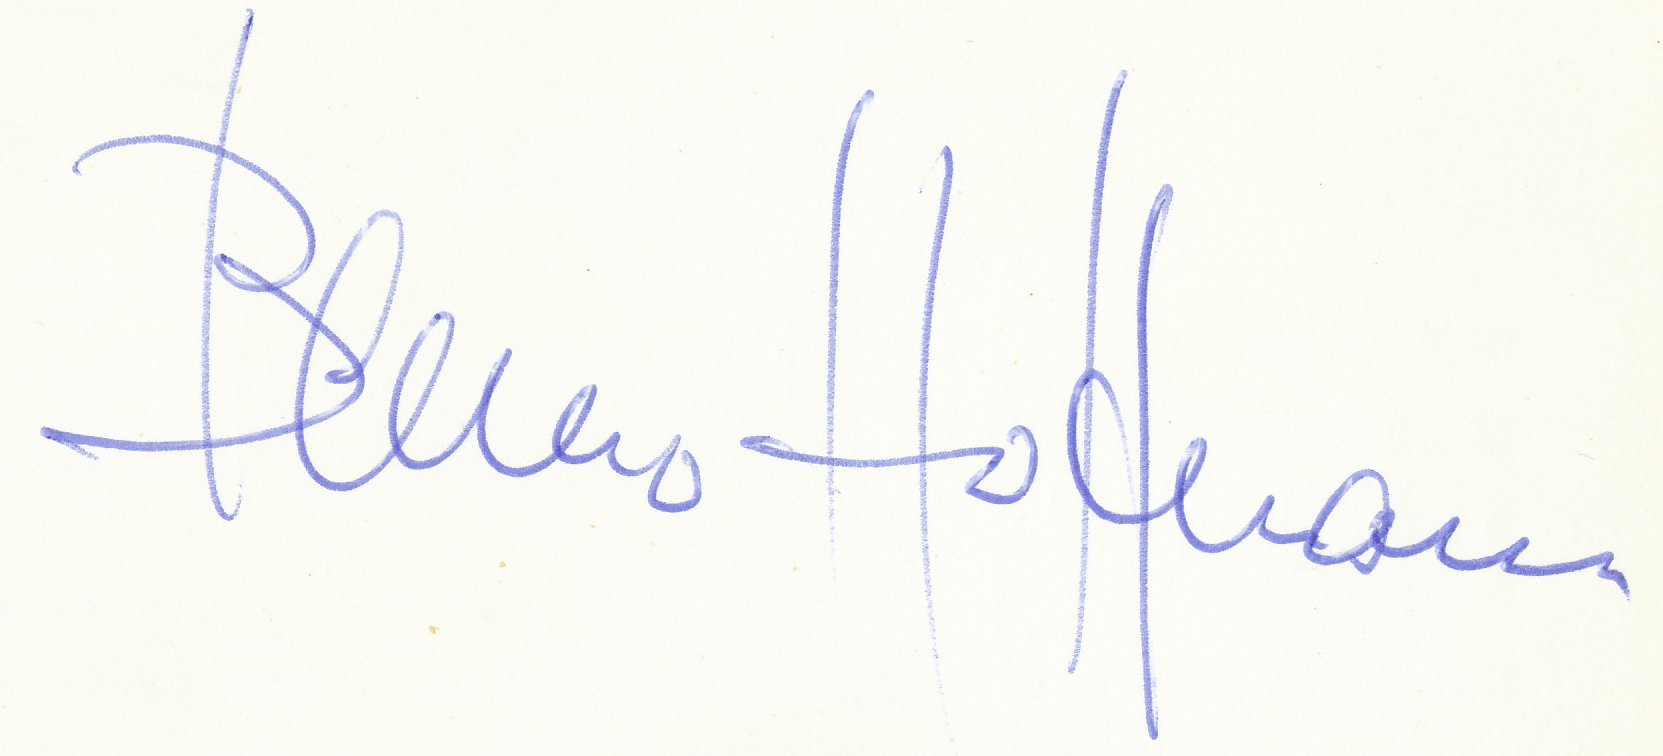 Benno Hoffmann